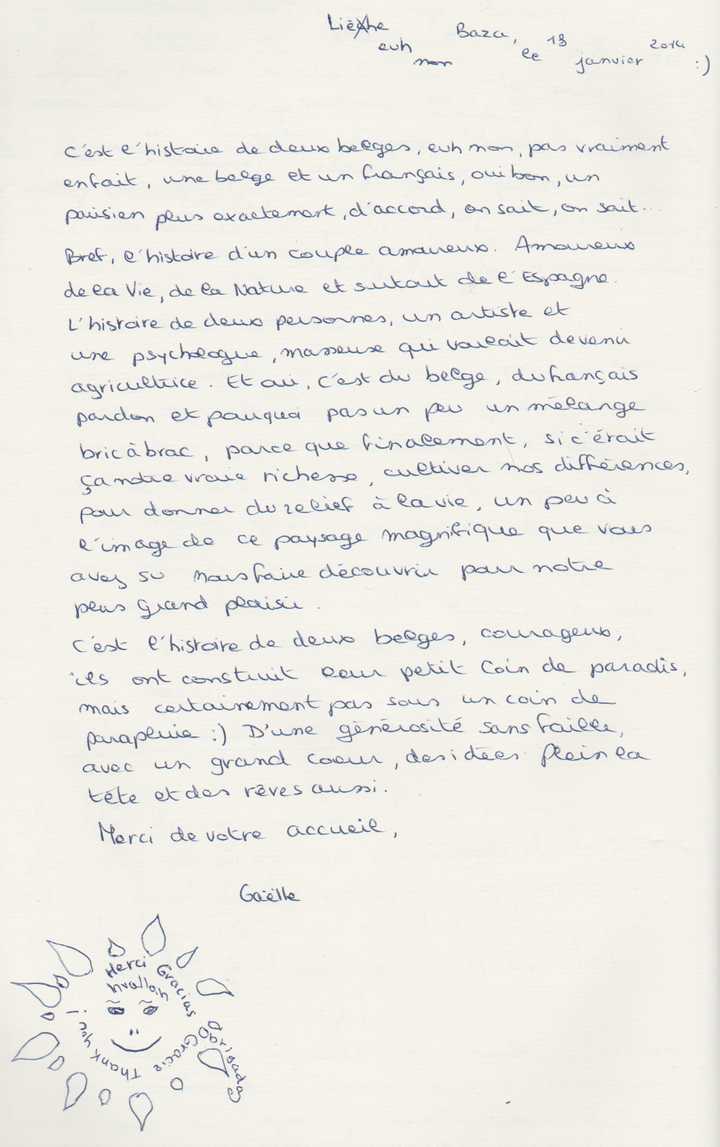 Lièxhe
euh
non
Baza,
le 13
janvier 2014
:)
C'est l'histoire de deux belges, euh non, pas vraiment
enfait, une belge et un français, oui bon, un
parisien plus exactement, d'accord, on sait, on sait...
Bref, l'histoire d'un couple amoureux. Amoureux
de la Vie, de la Nature et surtout de l'Espagne.
L'histoire de deux personnes, un artiste et
une psychologue, masseuse qui voulait devenir
agricultrice. Et oui, c'est du belge, du français
pardon et pourquoi pas un peu un mélange
bric à brac, parce que finalement, si c'était
ça notre vraie richesse, cultiver nos différences,
pour donner du relief à la vie, un peu à
l'image de ce paysage magnifique que vous
avez su nous faire découvrir pour notre
plus grand plaisir.
C'est l'histoire de deux belges, courageux,
ils ont construit leur petit coin de paradis,
mais certainement pas sous un coin de
parapluie :) D'une générosité sans faille,
avec un grand coeur, des idées plein la
tête et des rêves aussi.
Merci de votre accueil,
Gaëlle
Merci Gracias Obrigada
Gracie Thank you !